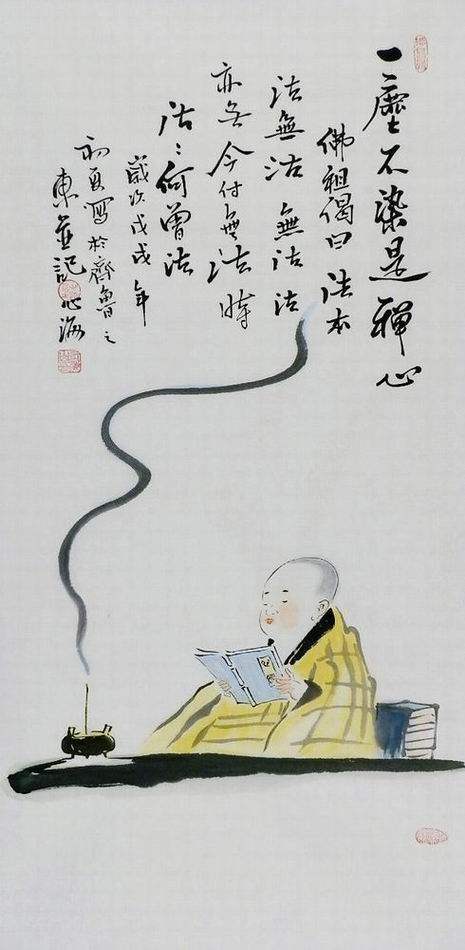 一塵不染是禪心
佛祖偈曰法本
法無法無法法
亦無今付無法時
法〻何曾法
歲次戊戌年
初夏寫於齊魯之
東並記心海